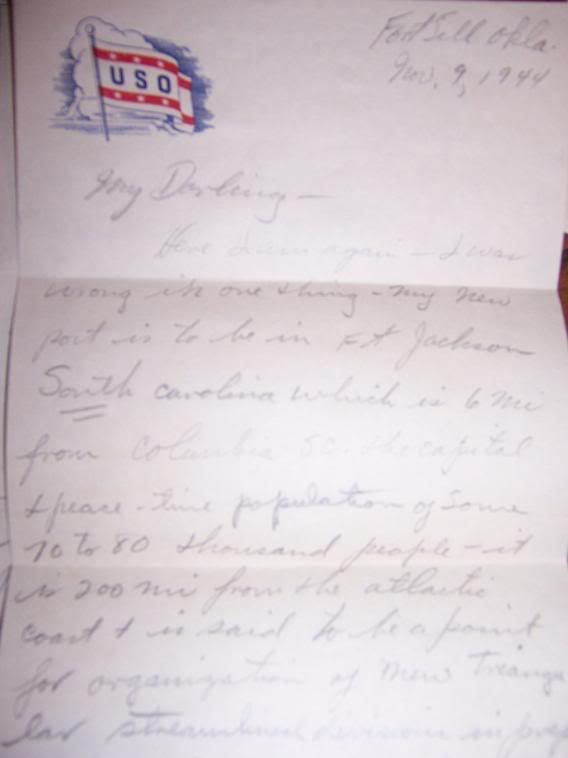 USO
Fort Sill Okla.
Nov. 9, 1944
My Darling —
Here I am again — I was
wrong in one thing - my new
post is to be in Ft Jackson
South Carolina which is 6 mi
from Columbia S.C. the capital
& peace-time population of some
70 to 80 thousand people - it
is 200 mi from the atlantic
coast & is said to be a point
for organization of new Triangu
lar streamlined divisions in prep